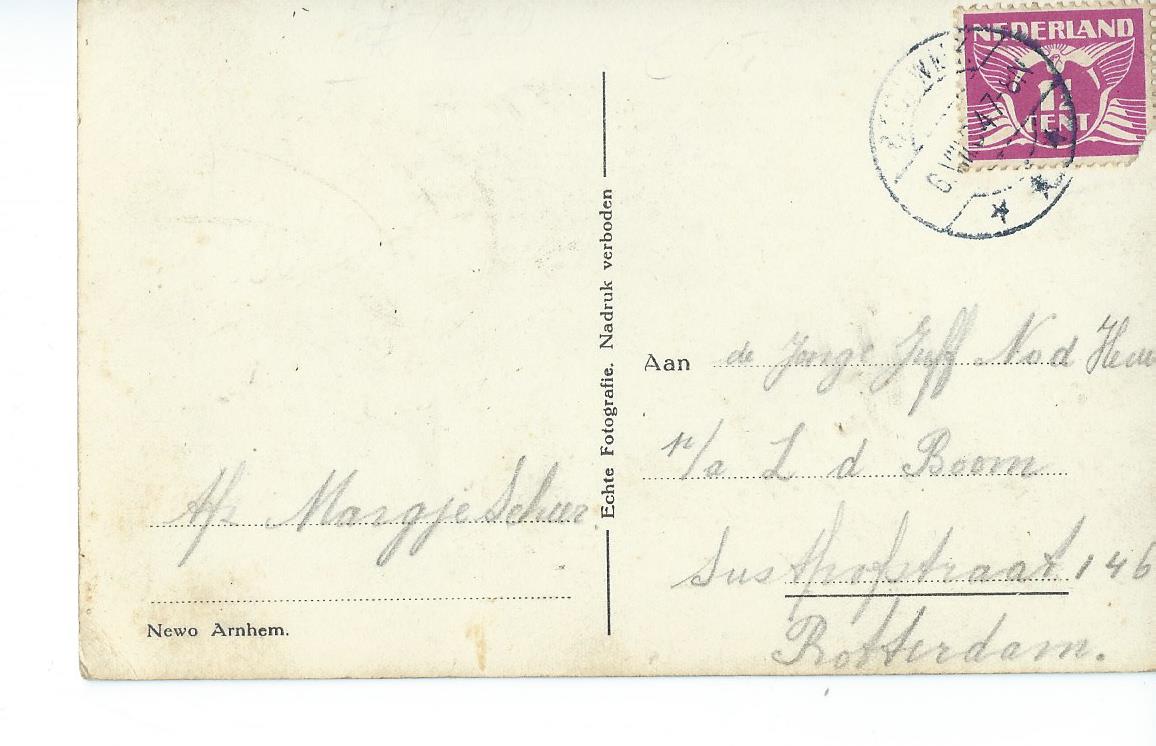 NEDERLAND
1½
CENT
Echte Fotografie. Nadruk verboden
Aan de Jonge Juff Nod
p/a L d Boom
straat 146
Rotterdam.
Afz Margje Schur
Newo Arnhem.